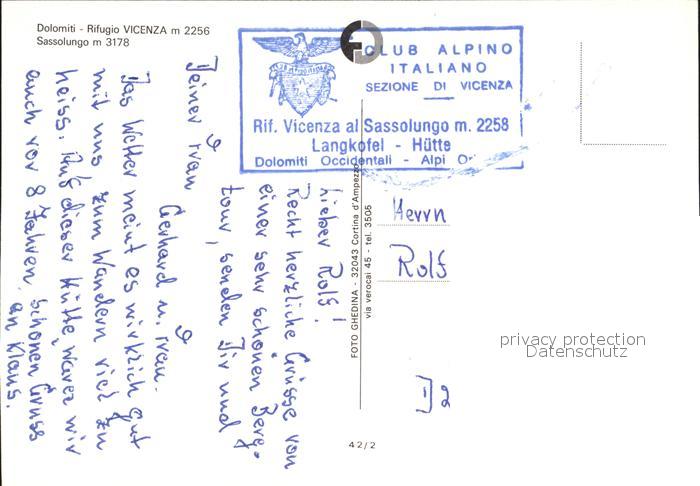 Dolomiti - Rifugio VICENZA m 2256
Sassolungo m 3178
CLUB ALPINO
ITALIANO
SEZIONE DI VICENZA
Rif. Vicenza al Sassolungo m. 2258
Langkofel - Hütte
Dolomiti Occidentali - Alpi Or
Lieber Rolf!
Recht herzliche Grüsse von
einer sehr schönen Berg-
tour, senden Dir und
Deiner Frau
Gerhard u. Frau.
Das Wetter meint es wirklich gut
mit uns zum Wandern viel zu
heiss. Auf dieser Hütte, waren wir
auch vor 8 Jahren, schönen Gruss
an Klaus.
FOTO GHEDINA - 32043 Cortina d'Ampezzo
via verocai 45 - tel. 3505
Herrn
Rolf
privacy protection
Datenschutz
D 2
42/2